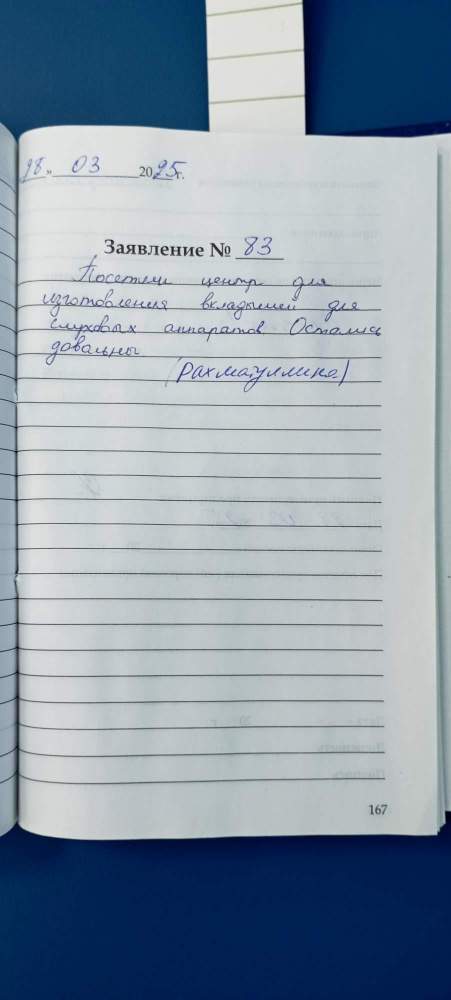 28 » 03 2025 г.
Заявление № 83
Посетили центр для
изготовления вкладышей для
слуховых аппаратов Остались
довальны
(Рахматуллина)
167